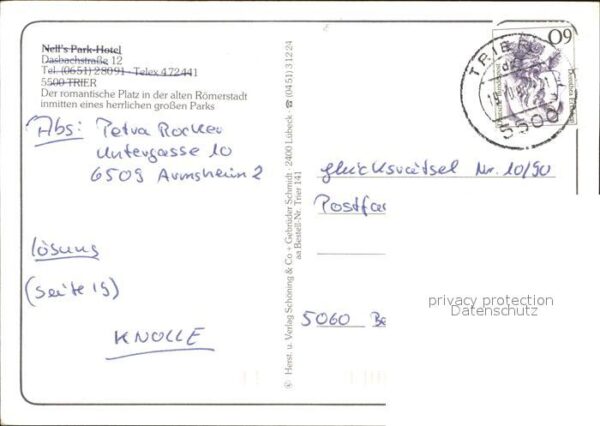 Nell's Park-Hotel
Dasbachstraße 12
Tel. (0651) 28091 · Telex 472441
5500 TRIER
Der romantische Platz in der alten Römerstadt
inmitten eines herrlichen großen Parks
Abs: Petra Rocker
Untergasse 10
6509 Armsheim 2
Lösung
(Seite 19)
KNOLLE
Herst. u. Verlag Schöning & Co + Gebrüder Schmidt · 2400 Lübeck · ☎ (0451) 3 12 24
aa Bestell-Nr. Trier 141
60
TRIER
5500
Glücksrätsel Nr. 10/90
Postfac
5060 Be
privacy protection
Datenschutz